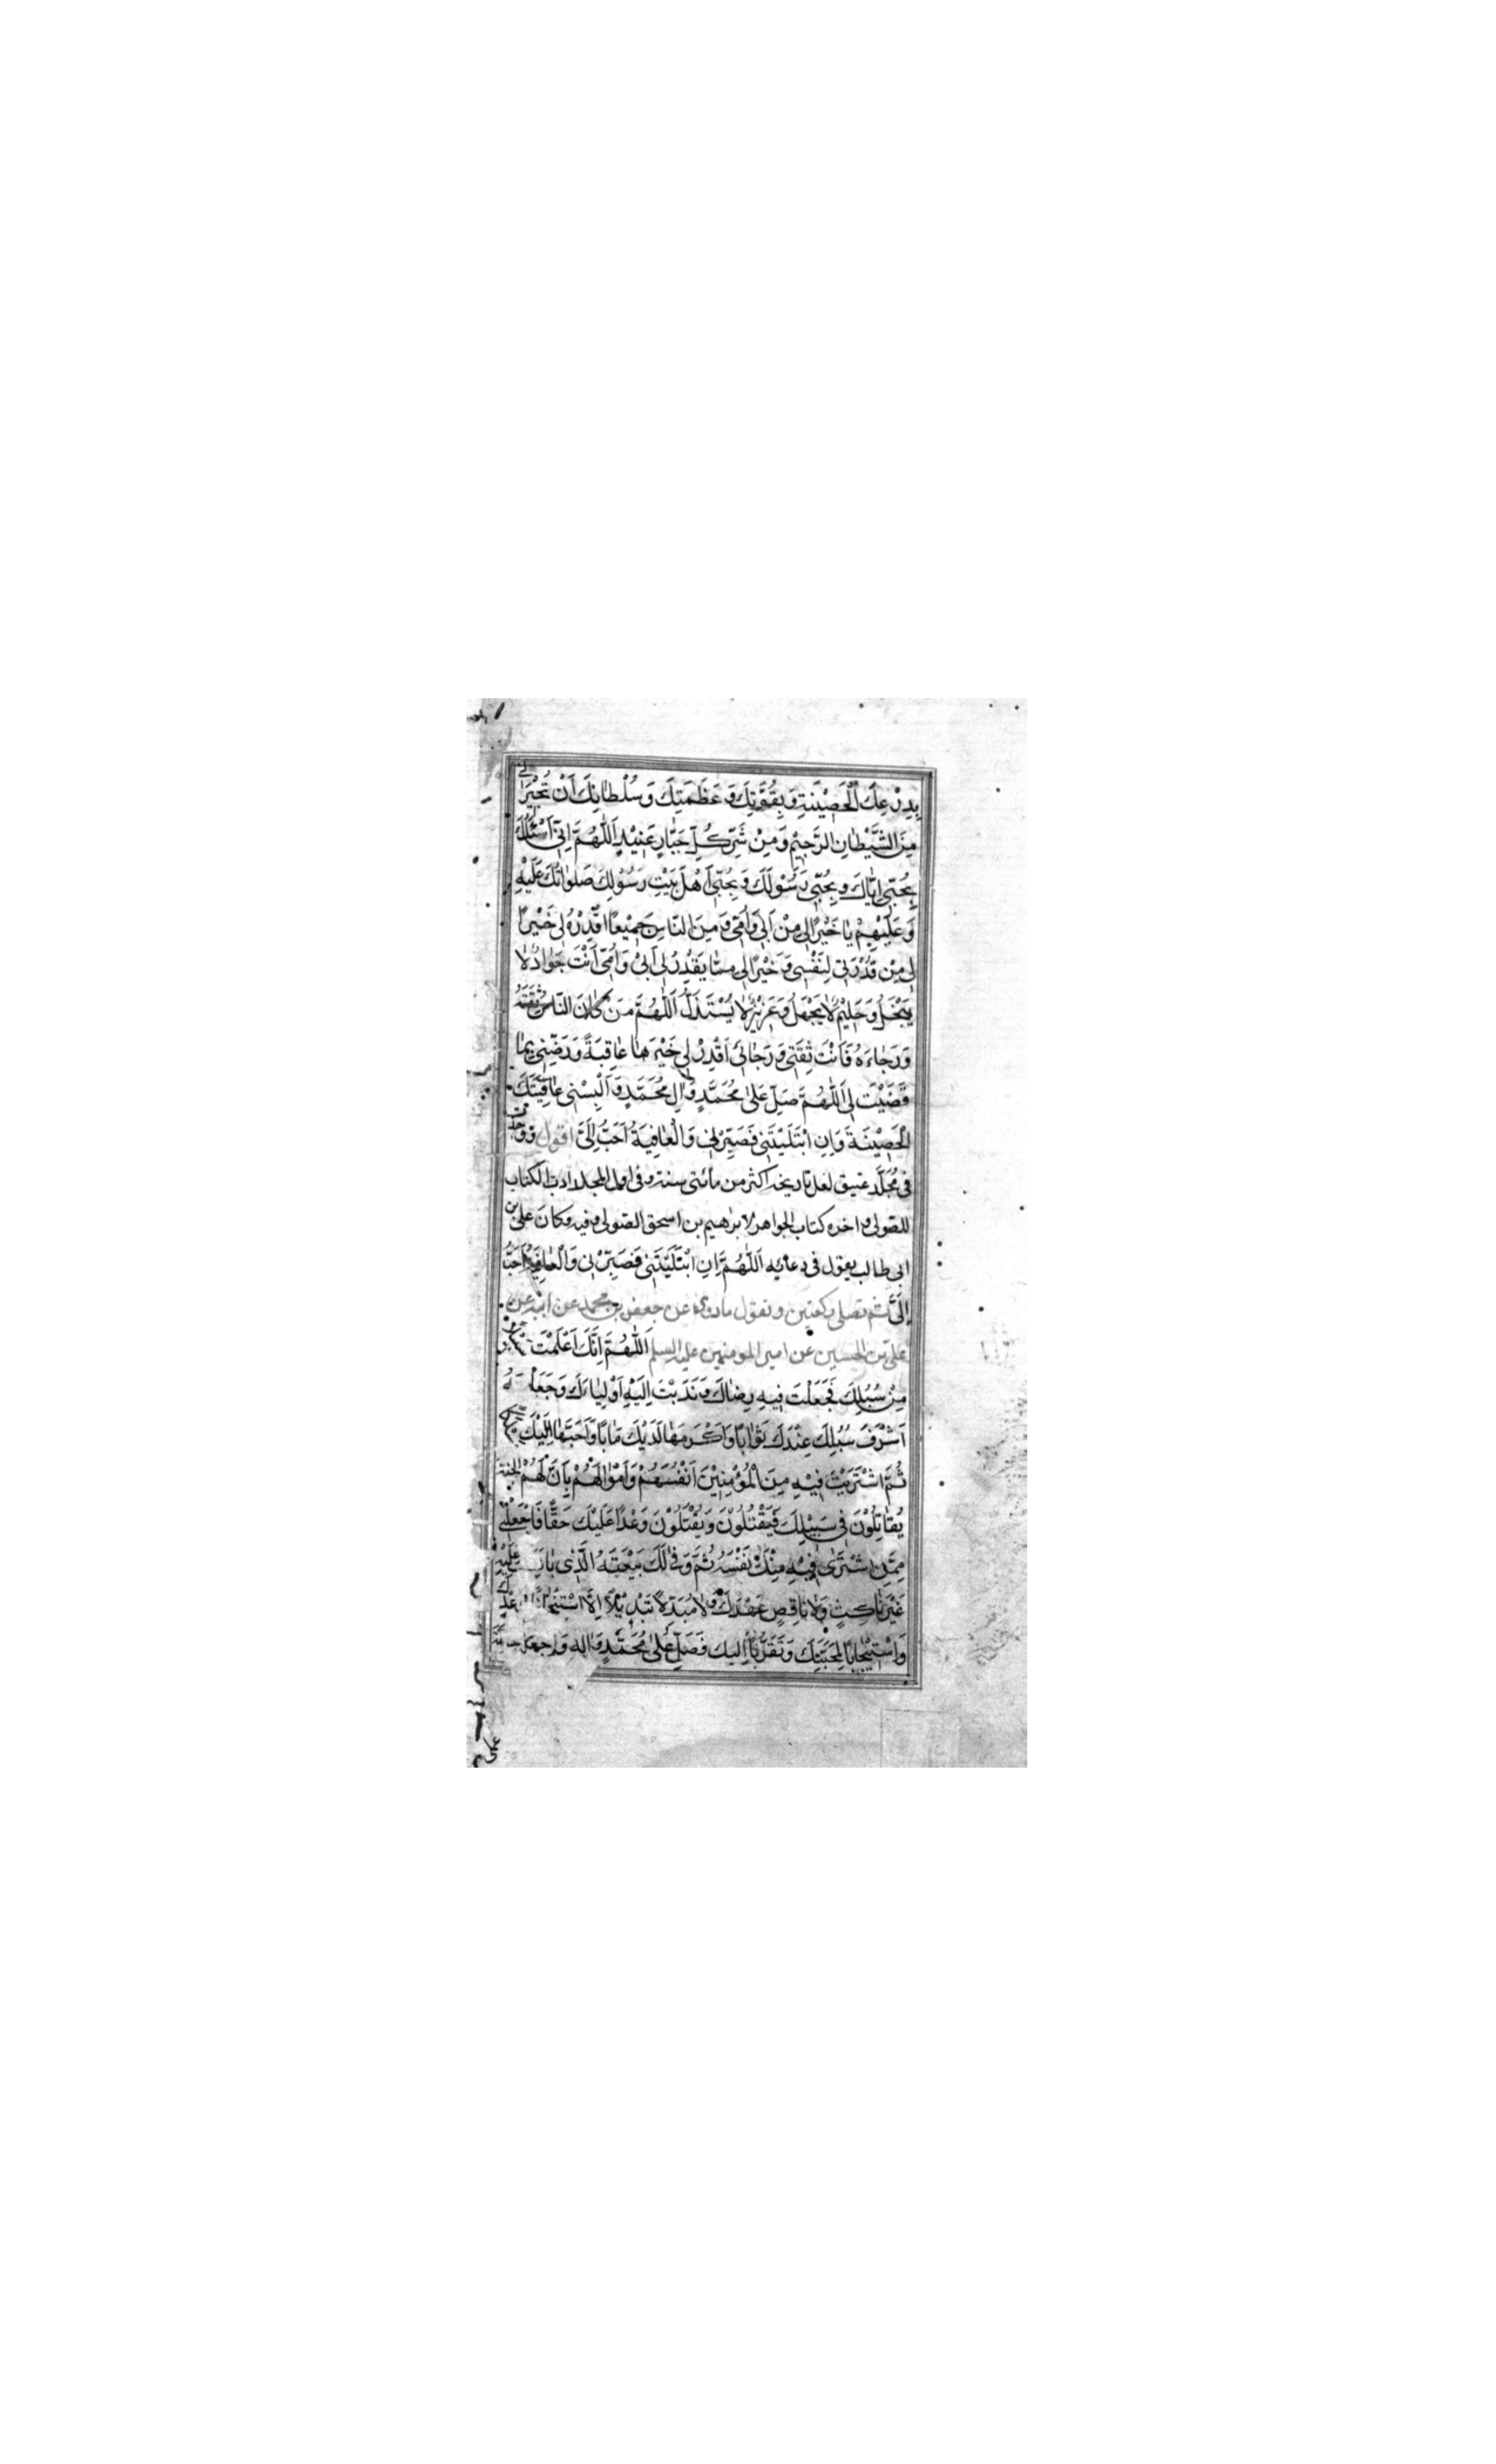 بِدِرْعِكَ الْحَصِيْنَةِ وَ بِقُوَّتِكَ وَ عَظَمَتِكَ وَ سُلْطَانِكَ اَنْ تُجِيْرَنِى
مِنَ الشَّيْطَانِ الرَّجِيْمِ وَ مِنْ شَرِّ كُلِّ جَبَّارٍ عَنِيْدٍ اَللّٰهُمَّ اِنِّى اَسْئَلُكَ
بِحُبِّى اِيَّاكَ وَ بِحُبِّى رَسُوْلَكَ وَ بِحُبِّى اَهْلَ بَيْتِ رَسُوْلِكَ صَلَوَاتُكَ عَلَيْهِ
وَ عَلَيْهِمْ يَا خَيْرًا لِى مِنْ اَبِى وَ اُمِّى وَ مِنَ النَّاسِ جَمِيْعًا اقْدِرْ لِى خَيْرًا
لِى مِنْ قَدْرَتِى لِنَفْسِى وَ خَيْرًا لِى مِمَّا يَقْدِرُ لِى اَبِى وَ اُمِّى اَنْتَ جَوَادٌ لَا
يَبْخَلُ وَ حَلِيْمٌ لَا يَجْهَلُ وَ عَزِيْزٌ لَا يُسْتَذَلُّ اَللّٰهُمَّ مَنْ كَانَ النَّاسُ ثِقَتَهُ
وَ رَجَاءَهُ فَاَنْتَ ثِقَتِى وَ رَجَائِى اقْدِرْ لِى خَيْرَهَا عَاقِبَةً وَ رَضِّنِى بِمَا
قَضَيْتَ لِى اَللّٰهُمَّ صَلِّ عَلٰى مُحَمَّدٍ وَ اٰلِ مُحَمَّدٍ وَ اَلْبِسْنِى عَافِيَتَكَ
الْحَصِيْنَةَ وَ اِنِ ابْتَلَيْتَنِى فَصَبِّرْنِى وَ الْعَافِيَةُ اَحَبُّ اِلَىَّ اقول و وجدت
فى مُجَلَّد عتيق لعل تاريخه اكثر من مائتى سنة و فى اول المجلد ادب الكتاب
للصولى و اخره كتاب الجواهر لابرهيم بن اسحق الصولى و فيه و كان على بن
ابى طالب يقول فى دعائه اَللّٰهُمَّ اِنِ ابْتَلَيْتَنِى فَصَبِّرْنِى وَ الْعَافِيَةُ اَحَبُّ
اِلَىَّ ثم تصلى ركعتين و تقول ما روى عن جعفر بن محمد عن ابيه عن
على بن الحسين عن امير المومنين عليه السلم اَللّٰهُمَّ اِنَّكَ اَعْلَمْتَ
مِنْ سُبُلِكَ فَجَعَلْتَ فِيهِ رِضَاكَ وَ نَدَبْتَ اِلَيْهِ اَوْلِيَاءَكَ وَ جَعَلْتَهُ
اَشْرَفَ سُبُلِكَ عِنْدَكَ ثَوَابًا وَ اَكْرَمَهَا لَدَيْكَ مَابًا وَ اَحَبَّهَا اِلَيْكَ
ثُمَّ اشْتَرَيْتَ فِيْهِ مِنَ الْمُؤْمِنِيْنَ اَنْفُسَهُمْ وَ اَمْوَالَهُمْ بِاَنَّ لَهُمُ الجنة
يُقَاتِلُوْنَ فِى سَبِيْلِكَ فَيَقْتُلُوْنَ وَ يُقْتَلُوْنَ وَعْدًا عَلَيْكَ حَقًّا فَاجْعَلْنِى
مِمَّنِ اشْتَرٰى فِيْهِ مِنْكَ نَفْسَهُ ثُمَّ وَفٰى لَكَ بَيْعَتَهُ الَّذِى بَايَعَكَ عَلَيْهِ
غَيْرَ نَاكِثٍ وَ لَا نَاقِضٍ عَهْدَكَ وَ لَا مُبَدِّلًا تَبْدِيْلًا اِلَّا اسْتِنْجَازًا
وَ اسْتِيْجَابًا لِمَحَبَّتِكَ وَ تَقَرُّبًا اِلَيْكَ فَصَلِّ عَلٰى مُحَمَّدٍ وَ اٰلِهِ وَ اجْعَلْ